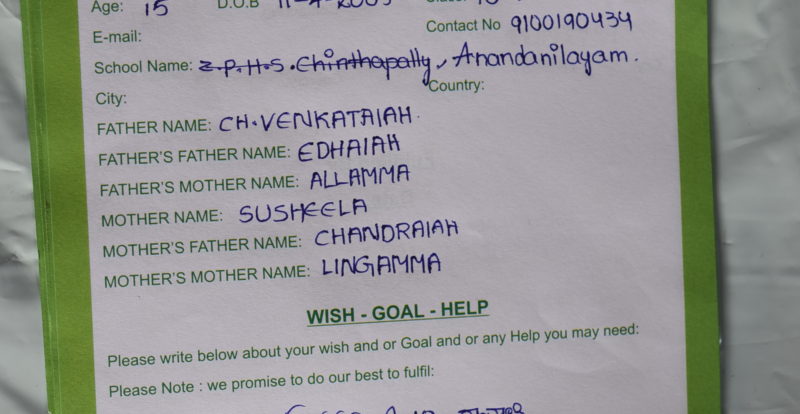 Age: 15 D.O.B
Contact No 9100190434
E-mail:
School Name: Z.P.H.S. Chinthapally, Anandanilayam.
City: Country:
FATHER NAME: CH.VENKATAIAH.
FATHER'S FATHER NAME: EDHAIAH
FATHER'S MOTHER NAME: ALLAMMA
MOTHER NAME: SUSHEELA
MOTHER'S FATHER NAME: CHANDRAIAH
MOTHER'S MOTHER NAME: LINGAMMA
WISH - GOAL - HELP
Please write below about your wish and or Goal and or any Help you may need:
Please Note : we promise to do our best to fulfil: